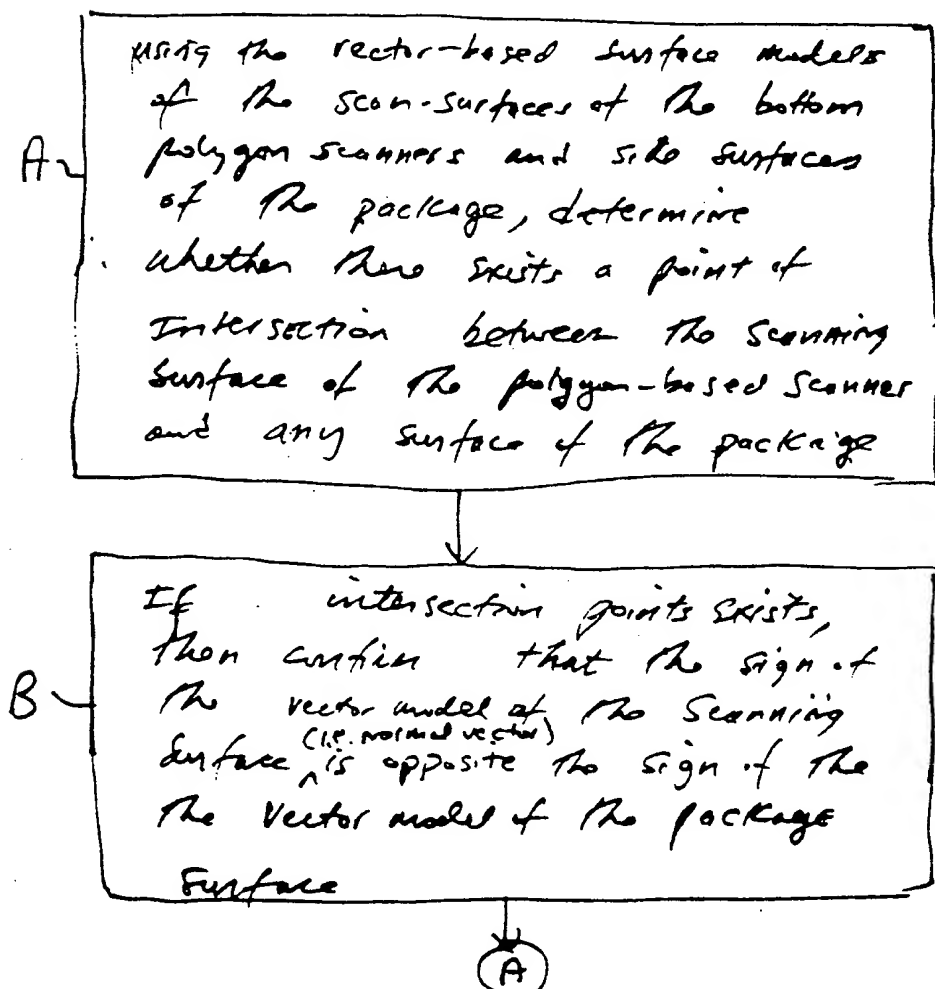 A
using the vector-based surface models
of the scan-surfaces of the bottom
polygon scanners and side surfaces
of the package, determine
whether there exists a point of
Intersection between the scanning
surface of the polygon-based scanner
and any surface of the package
B
If intersection points exists,
then confirm that the sign of
the vector model of the scanning
(i.e. normal vector)
surface ^ is opposite the sign of the
the vector model of the package
surface
A